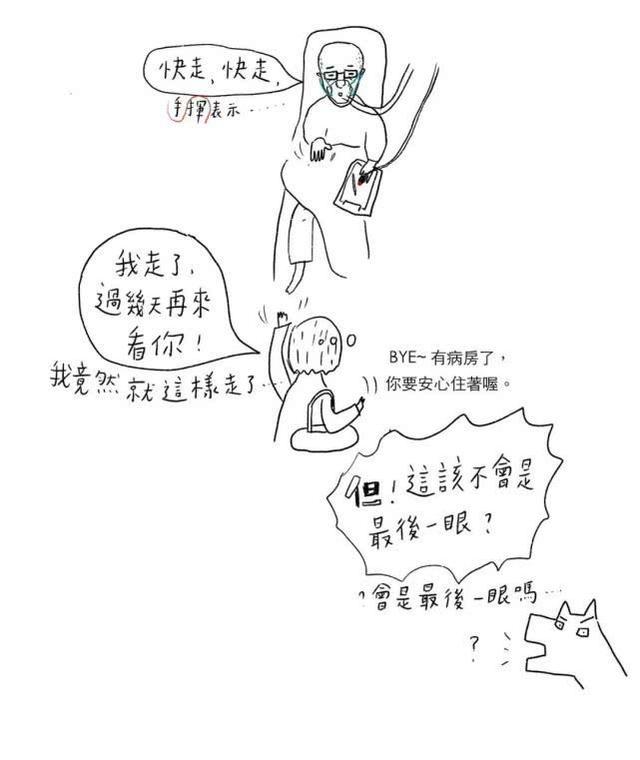 快走、快走，
手揮表示……
我走了，
過幾天再來
看你！
我竟然就這樣走了…
BYE~ 有病房了，
你要安心住著喔。
但！這該不會是
最後一眼？
？會是最後一眼嗎…
？